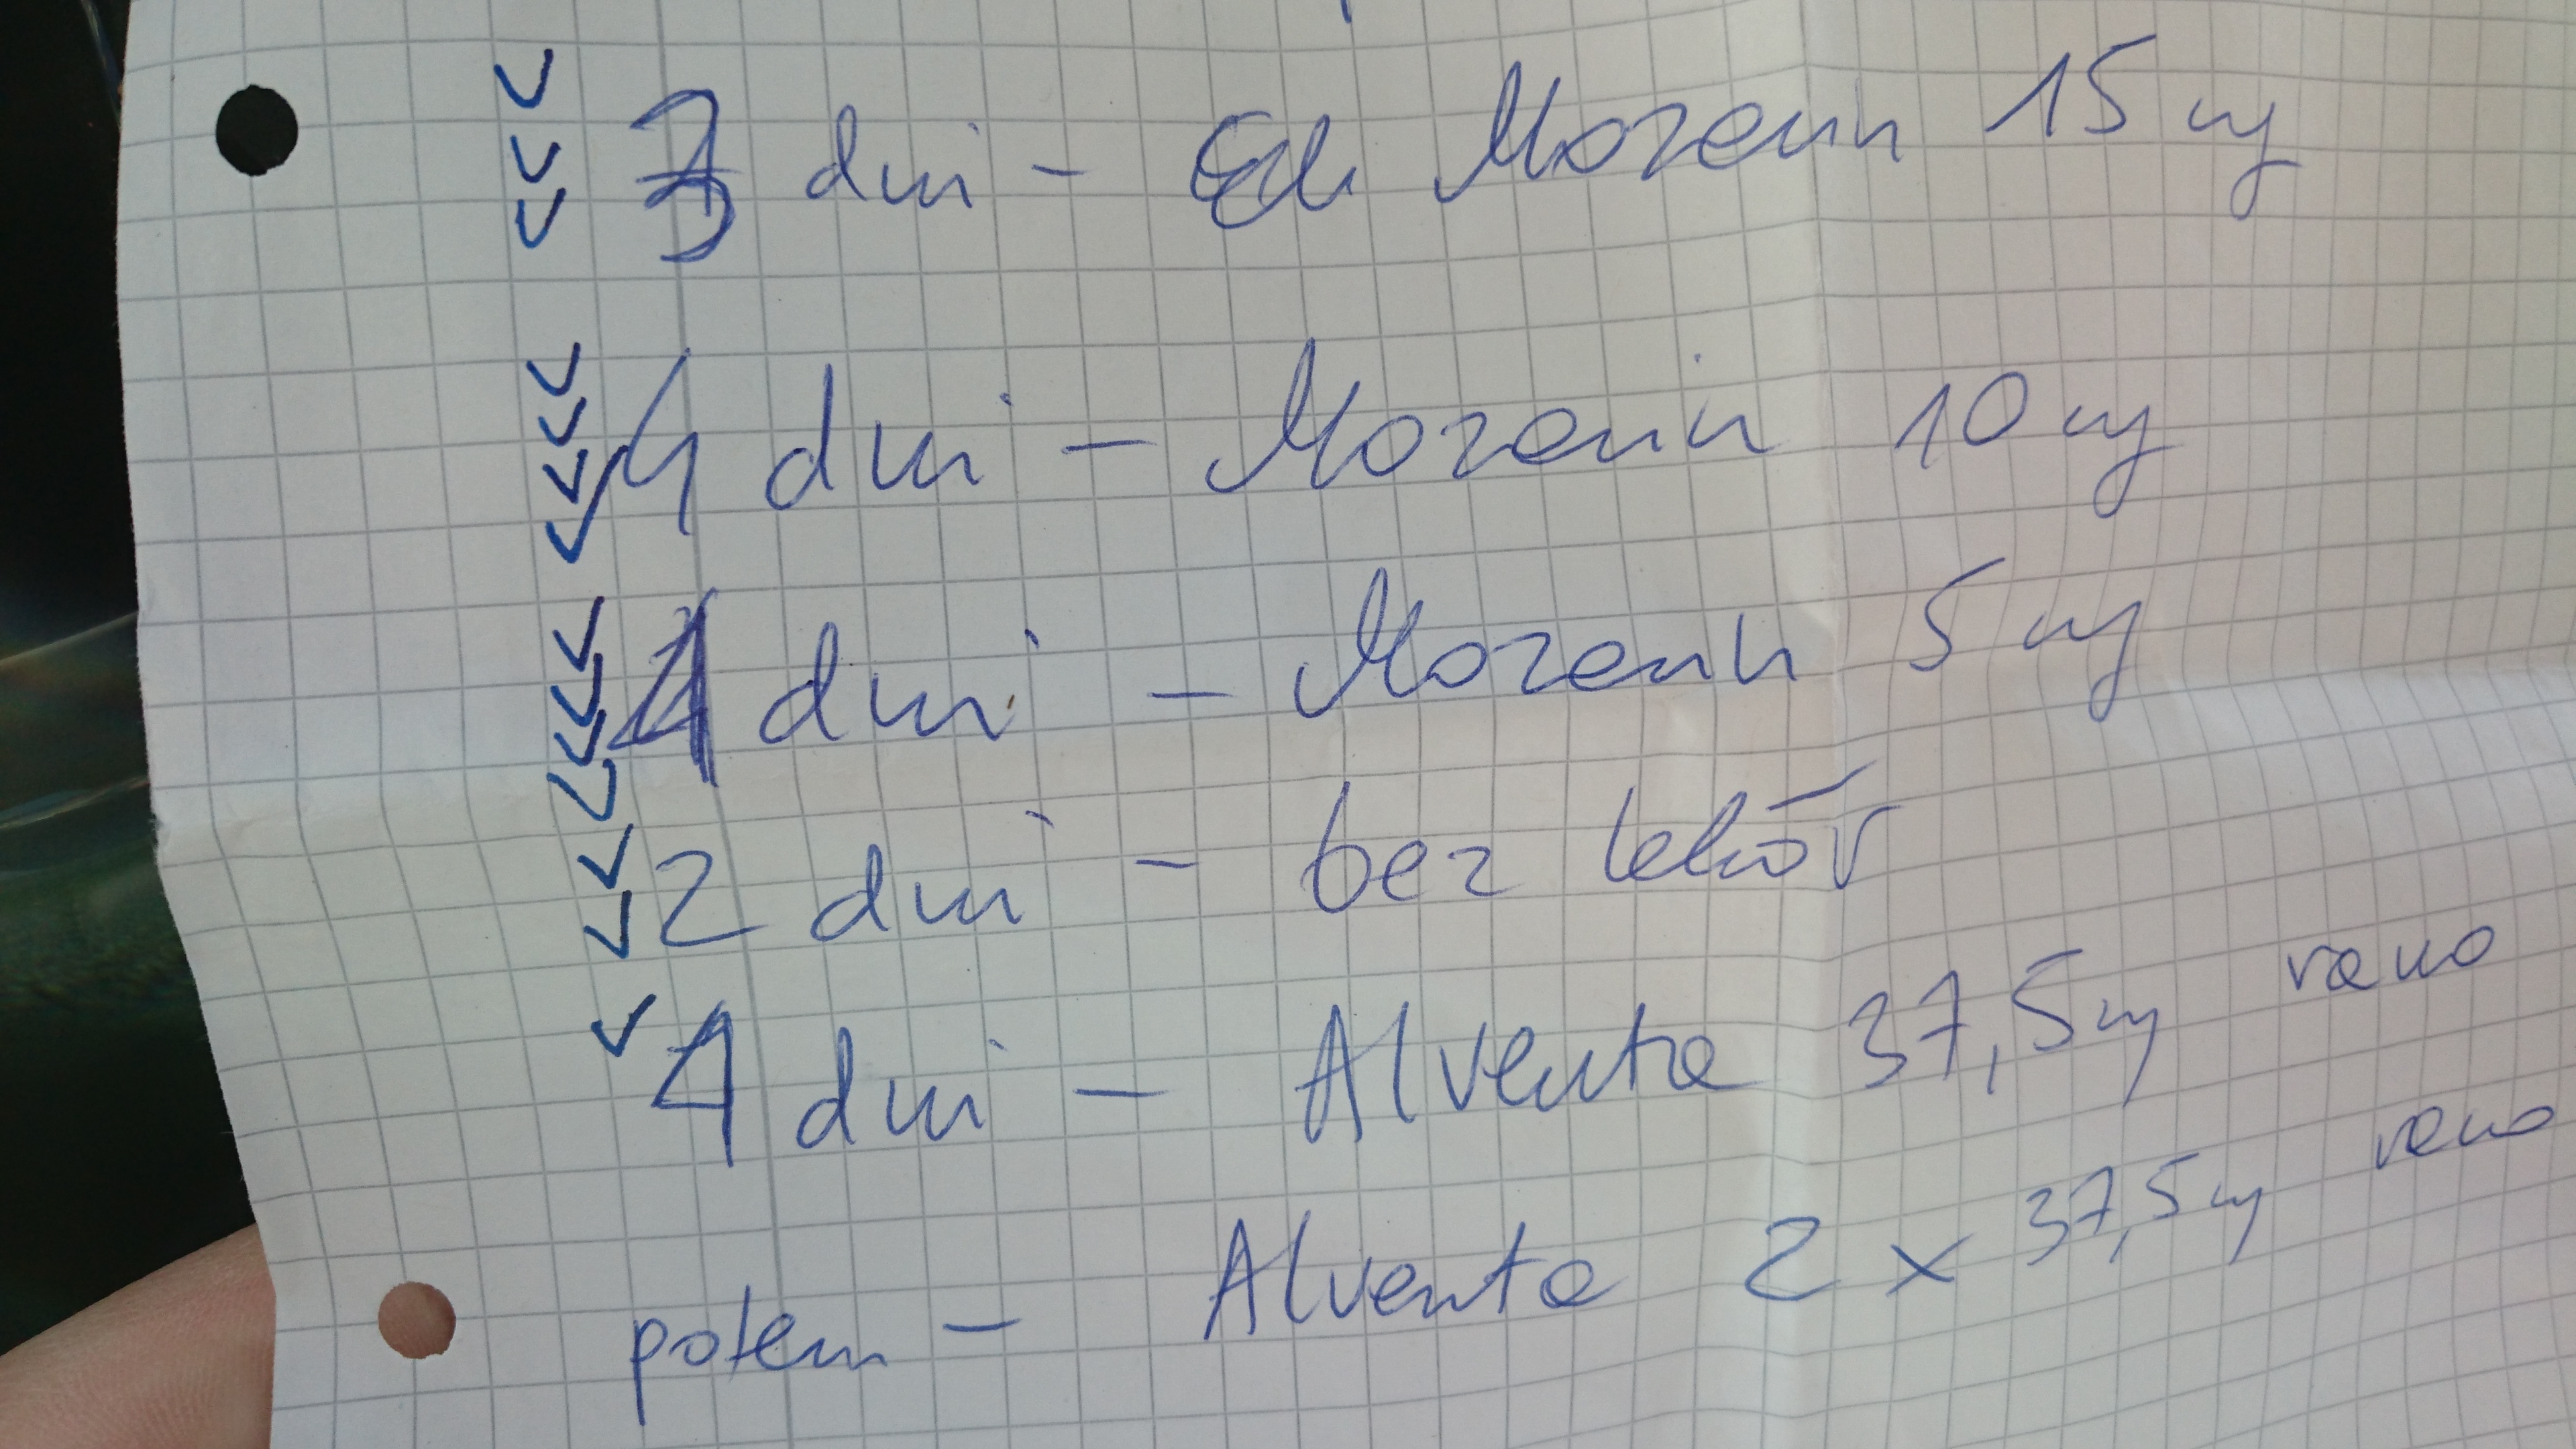 3 dni - Mozarin 15 mg
4 dni - Mozarin 10 mg
4 dni - Mozarin 5 mg
2 dni - bez leków
4 dni - Alventa 37,5 mg rano
potem - Alventa 2 x 37,5 mg rano